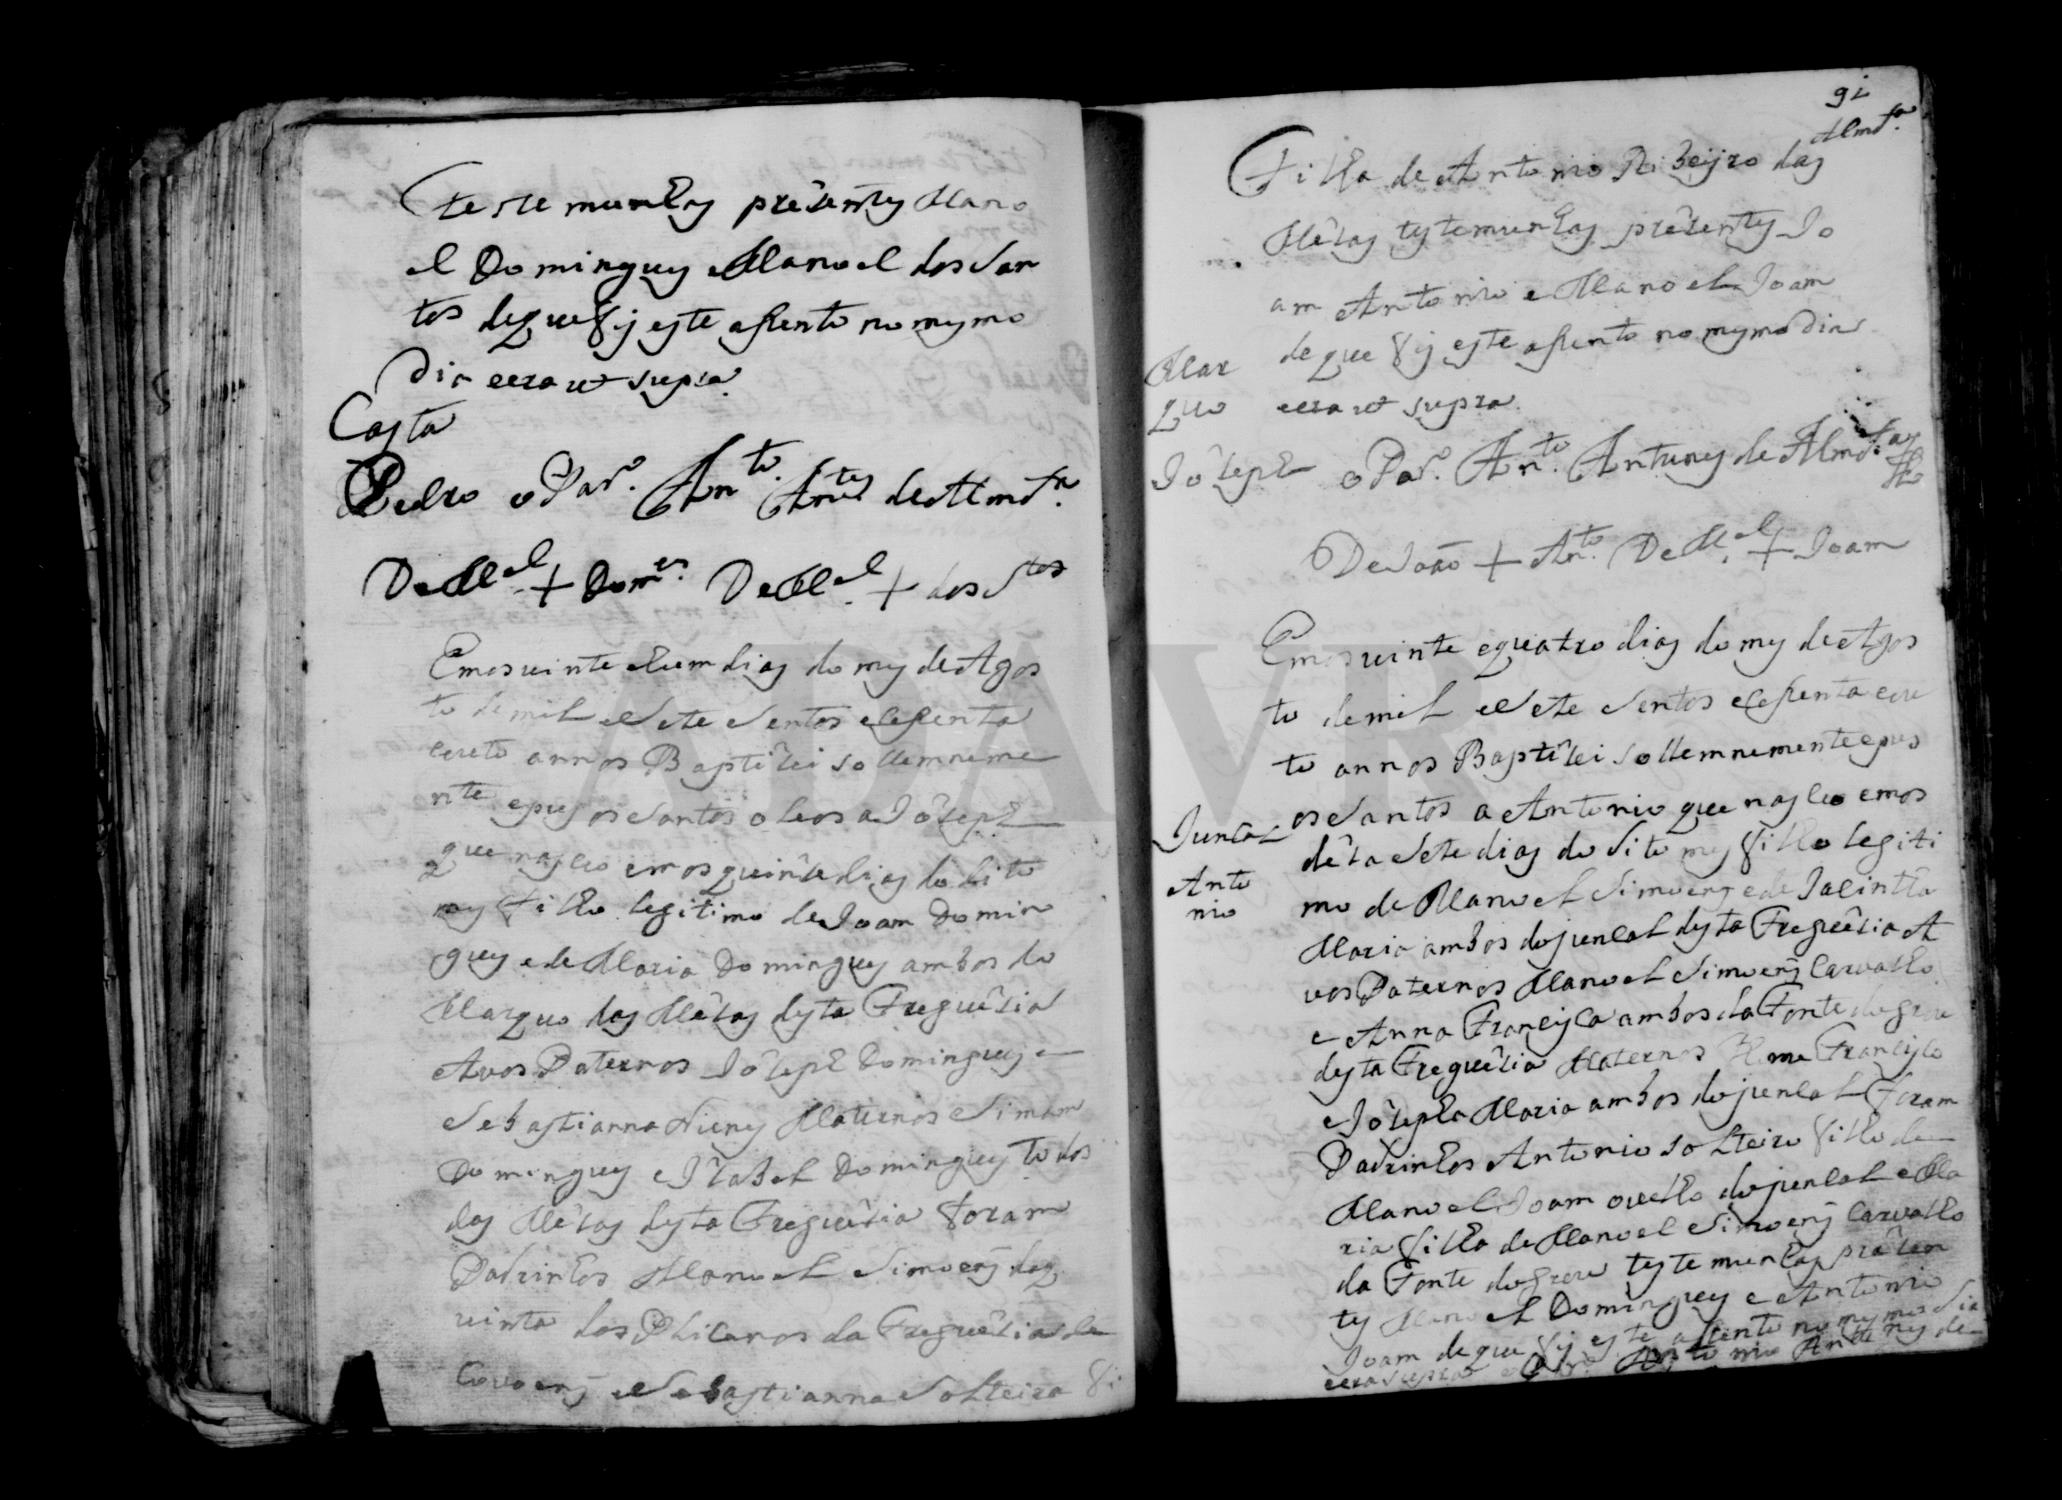 testemunhas prezentes Mano
el Domingues e Manoel dos San
tos de que fis este asento no mesmo
dia e era ut supra
Casta
Pedro o Par.º Ant.º Antes de Almd.ª
De M.el + Dom.es De M.el + dos S.tos
Em os vinte e hum dias do mes de Agos
to de mil e sete sentos e sesenta
e outo annos Baptizei sollemneme
nte e pus os Santos oleos a Jozeph
que nasceo em os quinze dias do dito
mes filho legitimo de Joam Domin
gues e de Maria Domingues ambos do
Marquo das Mezas desta Freguezia
Avos Paternos Jozeph Domingues e
Sebastianna Nunes Maternos Simam
Domingues e Izabel Domingues todos
das Mezas desta Freguezia foram
Padrinhos Manoel Simoens da q
uinta dos da Freguezia de
e Sebastianna Solteira fi
91
Almd.ª
Filha de Antonio Ribeijro das
Mezas testemunhas prezentes Jo
am Antonio e Manoel Joam
de que fis este asento no mesmo dia
e era ut supra.
Mar
quo
Jozeph
o Par.º Ant.º Antunes de Almd.ª
De Joaõ + Ant.º De M.el + Joam
Em os vinte e quatro dias do mes de Agos
to de mil e sete sentos e sesenta e ou
to annos Baptizei sollemnemente e pus
os Santos a Antonio que nasceo em os
Juncal
Anto
nio
deza sete dias do dito mes filho legiti
mo de Manoel Simoens e de Jacintha
Maria ambos do juncal desta Freguezia A
vos Paternos Manoel Simoens Carvalho
e Anna Francisca ambos da Fonte do
desta Freguezia Maternos Francisco
e Jozepha Maria ambos do juncal foram
Padrinhos Antonio solteiro filho de
Manoel Joam ovelho do juncal e Ma
ria filha de Manoel Simoens Carvalho
da Fonte do testemunhas prezen
tes Manoel Domingues e Antonio
Joam de que fis este asento no mesmo dia
e era supra Antonio Antunes de
ADAVR